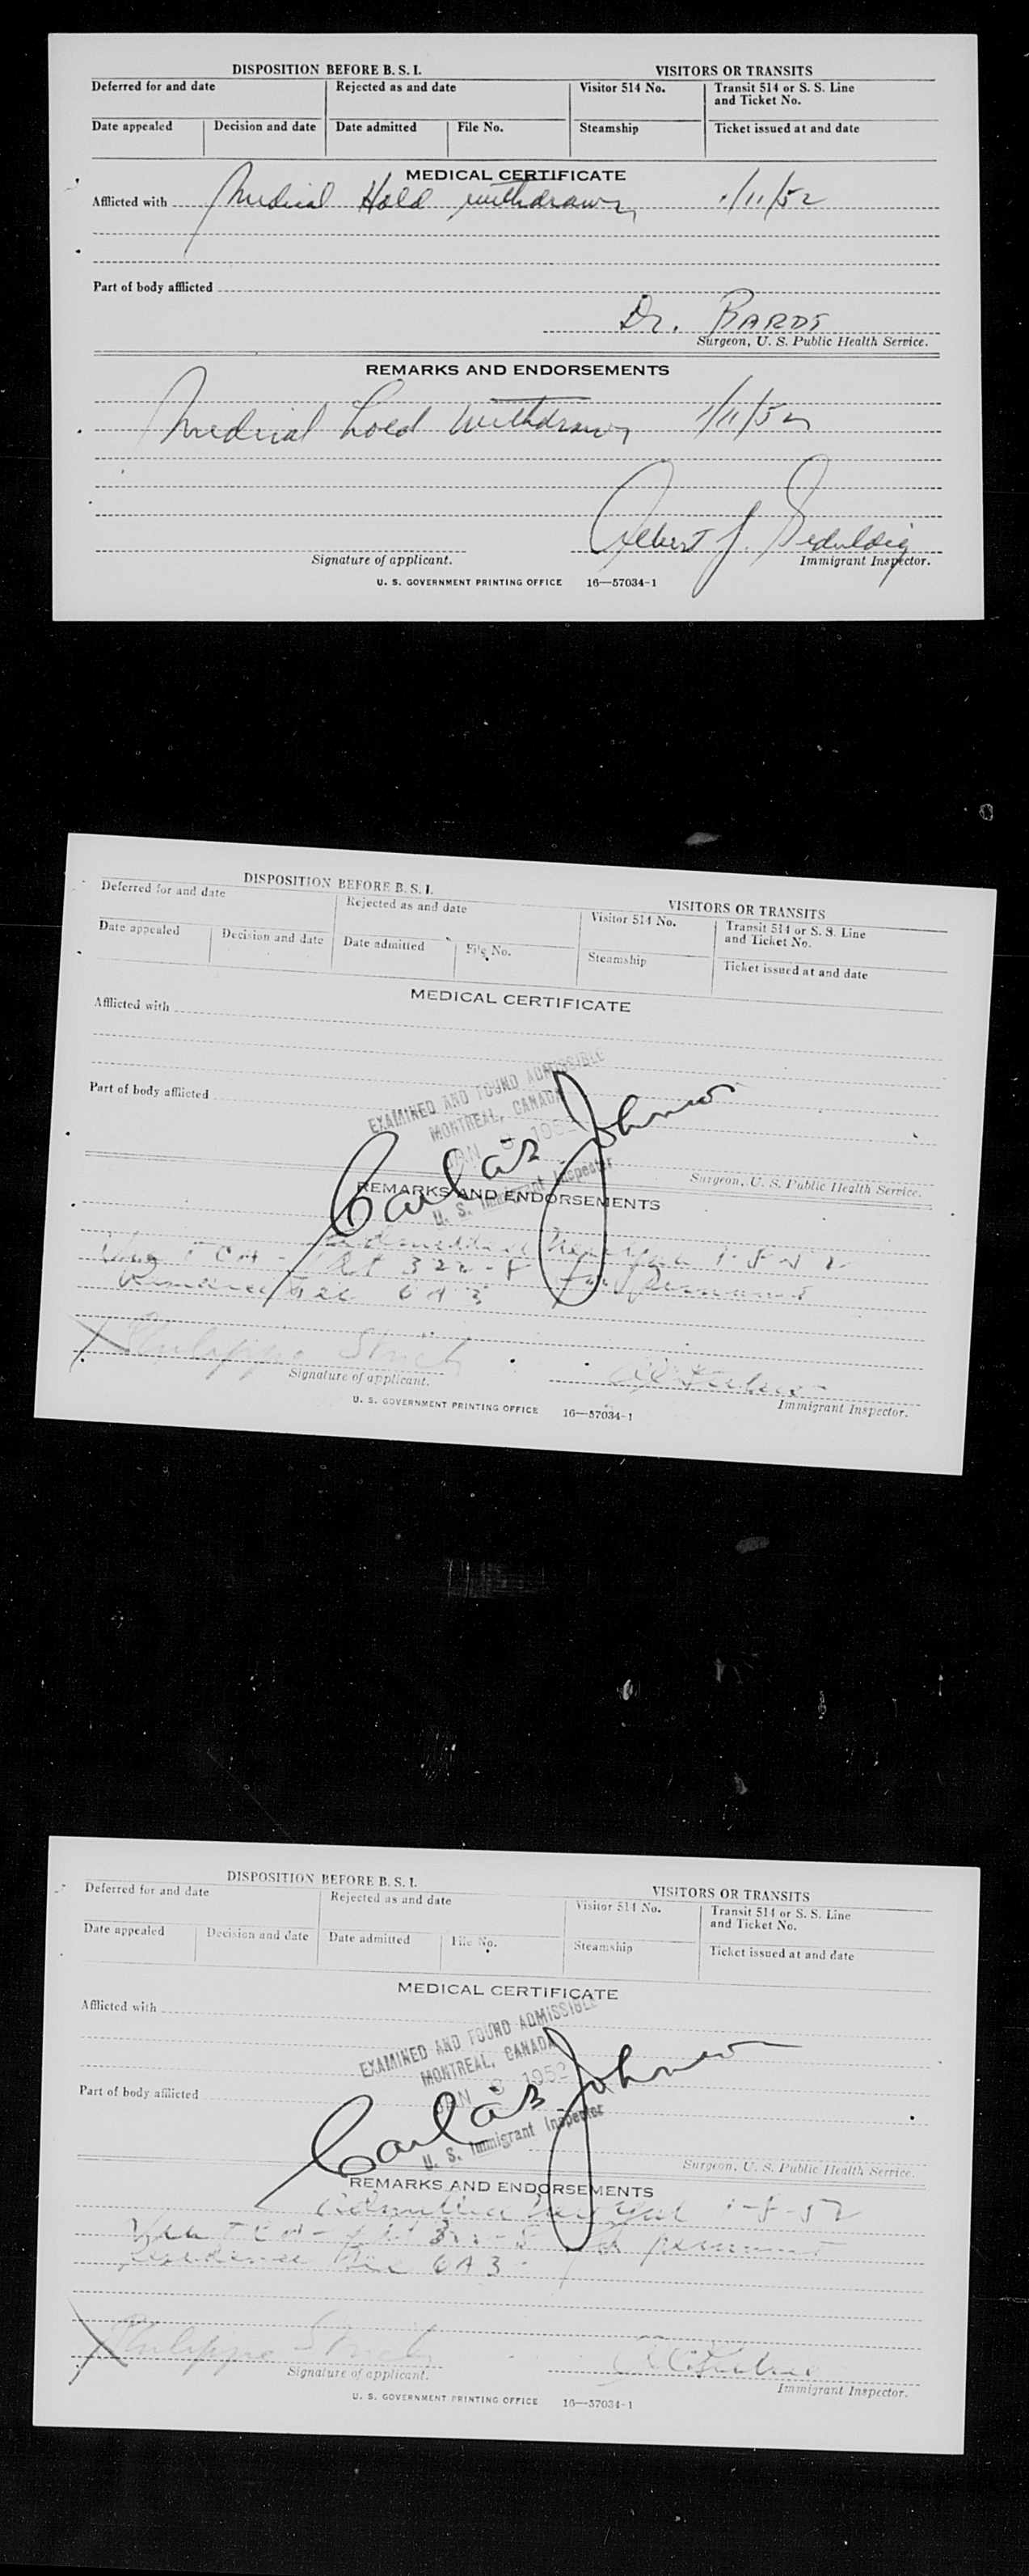 DISPOSITION BEFORE B. S. I.
VISITORS OR TRANSITS
Deferred for and date
Rejected as and date
Visitor 514 No.
Transit 514 or S. S. Line
and Ticket No.
Date appealed
Decision and date
Date admitted
File No.
Steamship
Ticket issued at and date
MEDICAL CERTIFICATE
Afflicted with Medical Hold withdrawn 1/11/52
Part of body afflicted
Dr. BARDS
Surgeon, U. S. Public Health Service.
REMARKS AND ENDORSEMENTS
Medical hold withdrawn 1/11/52
Albert J.
Signature of applicant.
Immigrant Inspector.
U. S. GOVERNMENT PRINTING OFFICE 16—57034-1
DISPOSITION BEFORE B. S. I.
VISITORS OR TRANSITS
Deferred for and date
Rejected as and date
Visitor 514 No.
Transit 514 or S. S. Line
and Ticket No.
Date appealed
Decision and date
Date admitted
File No.
Steamship
Ticket issued at and date
MEDICAL CERTIFICATE
Afflicted with
EXAMINED AND FOUND ADMISSIBLE
MONTREAL, CANADA
Part of body afflicted
JAN 1952
Johnson
U. S. Immigrant Inspector
Surgeon, U. S. Public Health Service.
REMARKS AND ENDORSEMENTS
Admitted New York 1-8-52
Via TCA - Flt 322-8 for permanent
residence Sec 6A3
Philippe
Signature of applicant.
Immigrant Inspector.
U. S. GOVERNMENT PRINTING OFFICE 16—57034-1
DISPOSITION BEFORE B. S. I.
VISITORS OR TRANSITS
Deferred for and date
Rejected as and date
Visitor 514 No.
Transit 514 or S. S. Line
and Ticket No.
Date appealed
Decision and date
Date admitted
File No.
Steamship
Ticket issued at and date
MEDICAL CERTIFICATE
Afflicted with
EXAMINED AND FOUND ADMISSIBLE
MONTREAL, CANADA
Part of body afflicted
JAN 1952
Johnson
U. S. Immigrant Inspector
Surgeon, U. S. Public Health Service.
REMARKS AND ENDORSEMENTS
Admitted New York 1-8-52
Via TCA - Flt for permanent
residence Sec 6A3
Philippe
Signature of applicant.
Immigrant Inspector.
U. S. GOVERNMENT PRINTING OFFICE 16—57034-1